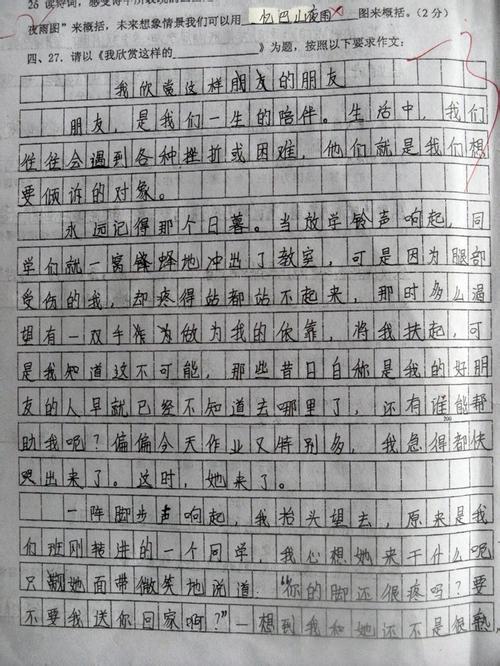 26 读诗词，感受诗中所表现的
夜雨图”来概括，未来想象情景我们可以用 忆巴山夜雨 图来概括。（2分）
四、27. 请以《我欣赏这样的 》为题，按照以下要求作文：
我欣赏这样朋友的朋友
朋友，是我们一生的陪伴。生活中，我们
往往会遇到各种挫折或困难，他们就是我们想
要倾诉的对象。
永远记得那个日暮。当放学铃声响起，同
学们就一窝锋蜂地冲出了教室，可是因为腿部
受伤的我，却疼得站都站不起来，那时多么渴
望有一双手作为做为我的依靠，将我扶起，可
是我知道这不可能，那些昔日自称是我的好朋
友的人早就已经不知道去哪里了，还有谁能帮
200
助我呢？偏偏今天作业又特别多，我急得都快
哭出来了。这时，她来了。
一阵脚步声响起，我抬头望去，原来是我
们班刚转进的一个同学，我心想她来干什么呢
只见她面带微笑地说道：“你的脚还很疼吗？要
不要我送你回家啊？”一想到我和她还不是很熟，